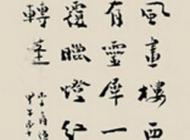 風畫樓西
有靈犀一
覆蠟燈紅
轉蓬